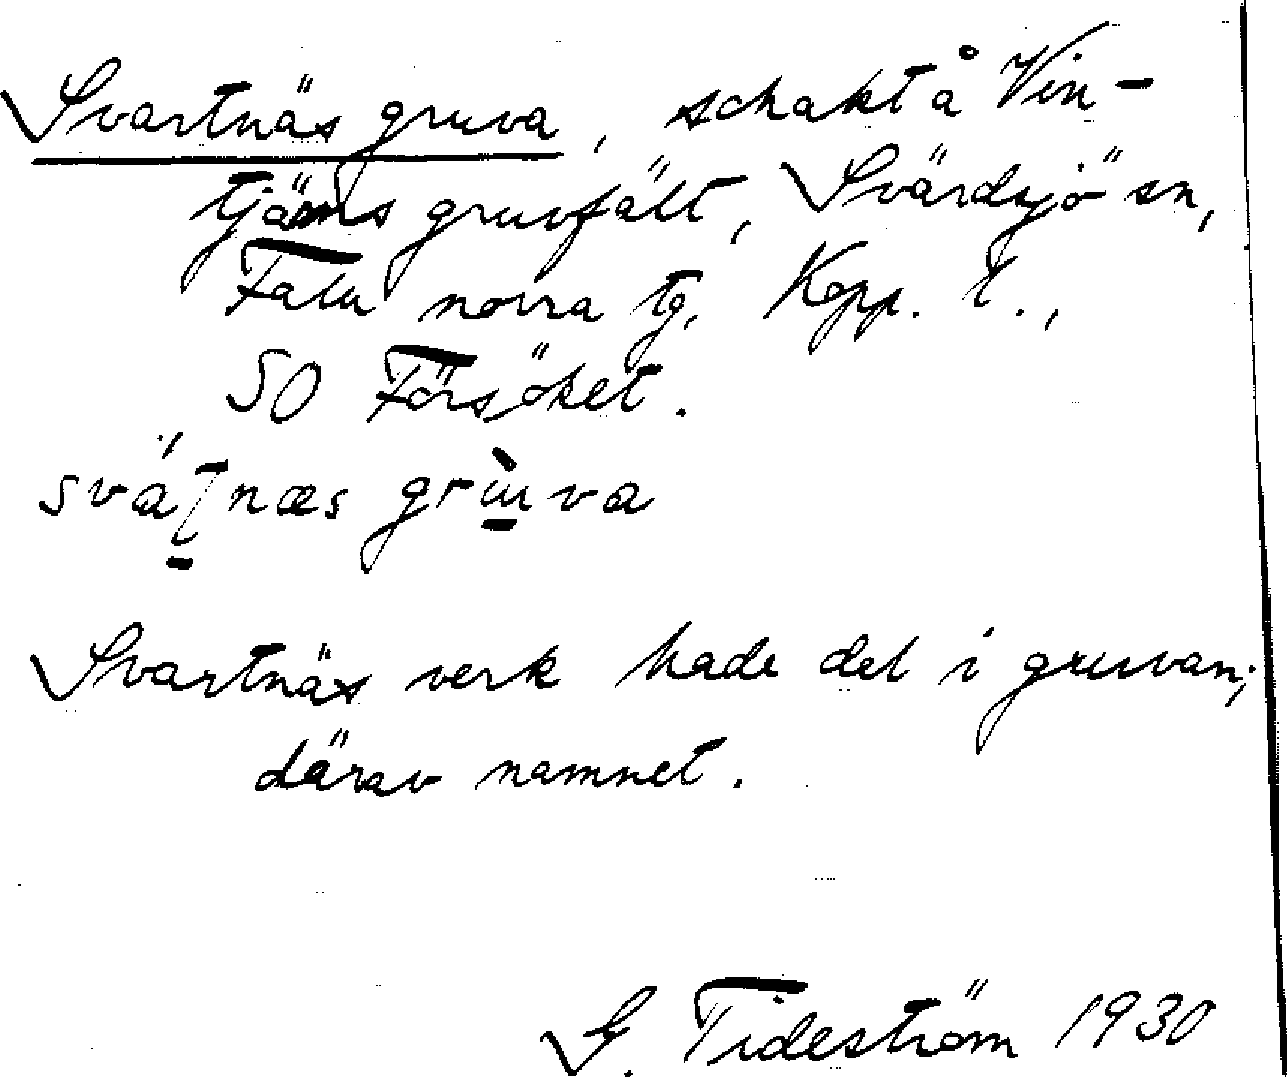 Svartnäs gruva, schakt å Vin-
tjärns gruvfält, Svärdsjö sn,
Falu norra tg, Kopp. l.,
SO Försöket.
gruva
Svartnäs verk hade del i gruvan;
därav namnet.
G. Tideström 1930